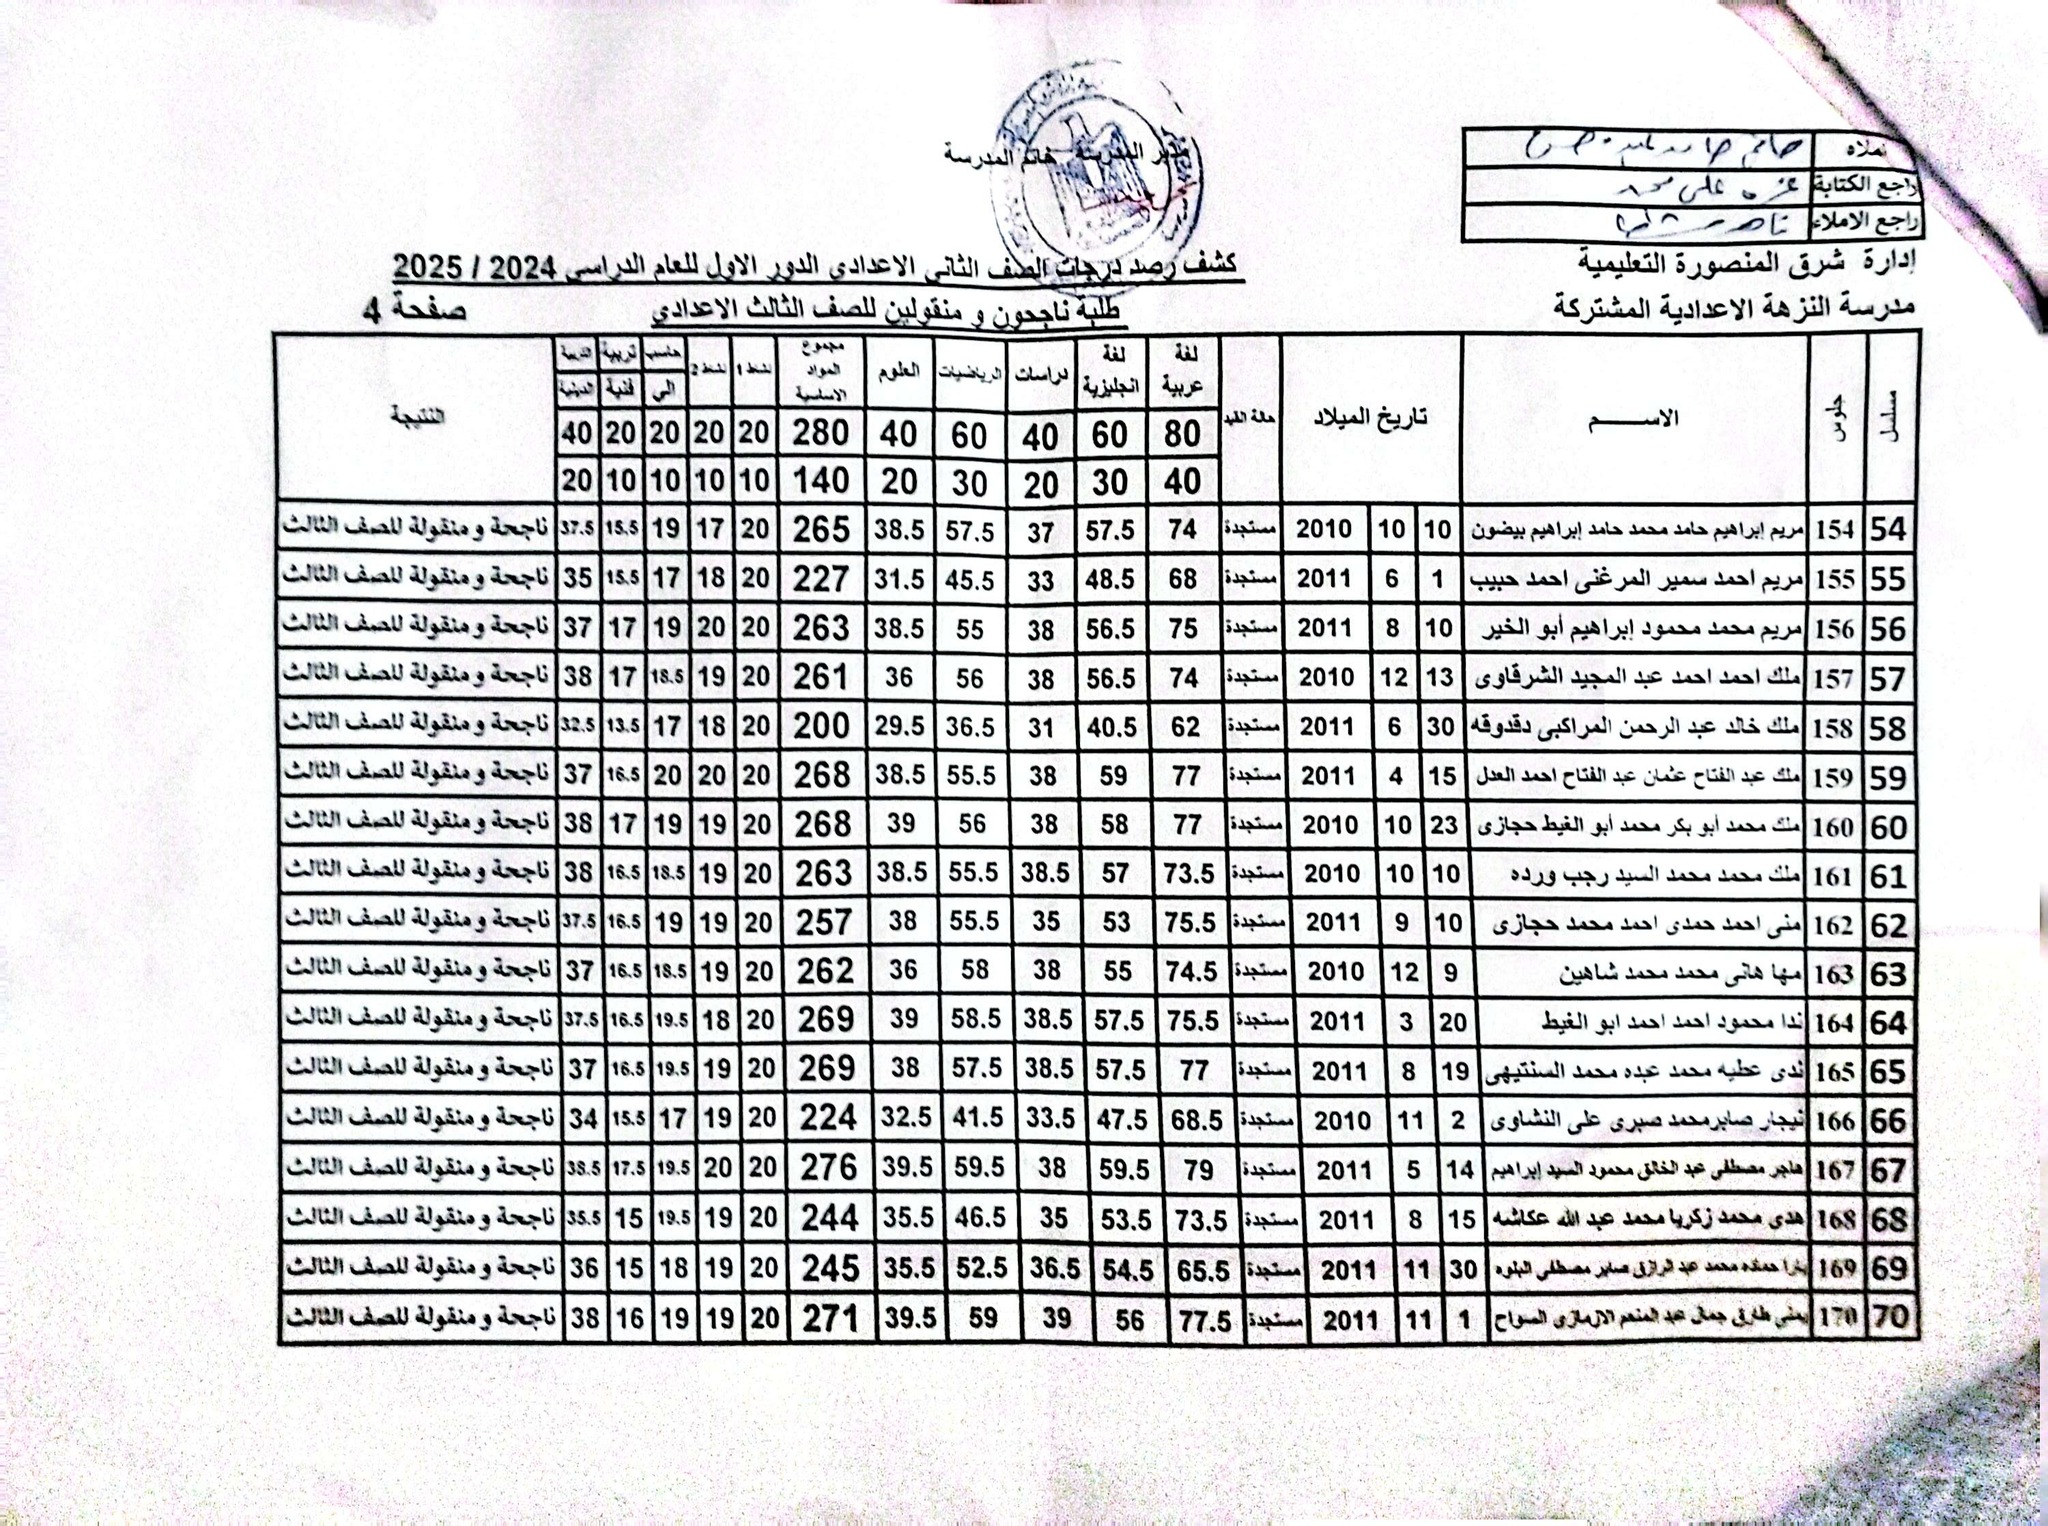 مدير المدرسة خاتم المدرسة
املاه
راجع الكتابة عزه على محمد
راجع الاملاء
إدارة شرق المنصورة التعليمية
كشف رصد درجات الصف الثاني الاعدادي الدور الاول للعام الدراسي 2024 / 2025
مدرسة النزهة الاعدادية المشتركة
طلبة ناجحون و منقولين للصف الثالث الاعدادي
صفحة 4
مسلسل جلوس الاســـم تاريخ الميلاد حالة القيد لغة عربية لغة انجليزية دراسات الرياضيات العلوم مجموع المواد الاساسية نشاط 1 نشاط 2 حاسب الي تربية فنية التربية الدينية النتيجة
80 60 40 60 40 280 20 20 20 20 40
40 30 20 30 20 140 10 10 10 10 20
54 154 مريم إبراهيم حامد محمد حامد إبراهيم بيضون 10 10 2010 مستجدة 74 57.5 37 57.5 38.5 265 20 17 19 15.5 37.5 ناجحة و منقولة للصف الثالث
55 155 مريم احمد سمير المرغنى احمد حبيب 1 6 2011 مستجدة 68 48.5 33 45.5 31.5 227 20 18 17 15.5 35 ناجحة و منقولة للصف الثالث
56 156 مريم محمد محمود إبراهيم أبو الخير 10 8 2011 مستجدة 75 56.5 38 55 38.5 263 20 20 19 17 37 ناجحة و منقولة للصف الثالث
57 157 ملك احمد احمد عبد المجيد الشرقاوى 13 12 2010 مستجدة 74 56.5 38 56 36 261 20 19 18.5 17 38 ناجحة و منقولة للصف الثالث
58 158 ملك خالد عبد الرحمن المراكبى دقدوقه 30 6 2011 مستجدة 62 40.5 31 36.5 29.5 200 20 18 17 13.5 32.5 ناجحة و منقولة للصف الثالث
59 159 ملك عبد الفتاح عثمان عبد الفتاح احمد العدل 15 4 2011 مستجدة 77 59 38 55.5 38.5 268 20 20 20 16.5 37 ناجحة و منقولة للصف الثالث
60 160 ملك محمد أبو بكر محمد أبو الغيط حجازى 23 10 2010 مستجدة 77 58 38 56 39 268 20 19 19 17 38 ناجحة و منقولة للصف الثالث
61 161 ملك محمد محمد السيد رجب ورده 10 10 2010 مستجدة 73.5 57 38.5 55.5 38.5 263 20 19 18.5 16.5 38 ناجحة و منقولة للصف الثالث
62 162 منى احمد حمدى احمد محمد حجازى 10 9 2011 مستجدة 75.5 53 35 55.5 38 257 20 19 19 16.5 37.5 ناجحة و منقولة للصف الثالث
63 163 مها هانى محمد محمد شاهين 9 12 2010 مستجدة 74.5 55 38 58 36 262 20 19 18.5 16.5 37 ناجحة و منقولة للصف الثالث
64 164 ندا محمود احمد احمد ابو الغيط 20 3 2011 مستجدة 75.5 57.5 38.5 58.5 39 269 20 18 19.5 16.5 37.5 ناجحة و منقولة للصف الثالث
65 165 ندى عطيه محمد عبده محمد السنتيهى 19 8 2011 مستجدة 77 57.5 38.5 57.5 38 269 20 19 19.5 16.5 37 ناجحة و منقولة للصف الثالث
66 166 نيجار صابرمحمد صبرى على النشاوى 2 11 2010 مستجدة 68.5 47.5 33.5 41.5 32.5 224 20 19 17 15.5 34 ناجحة و منقولة للصف الثالث
67 167 هاجر مصطفى عبد الخالق محمود السيد إبراهيم 14 5 2011 مستجدة 79 59.5 38 59.5 39.5 276 20 20 19.5 17.5 38.5 ناجحة و منقولة للصف الثالث
68 168 هدى محمد زكريا محمد عبد الله عكاشه 15 8 2011 مستجدة 73.5 53.5 35 46.5 35.5 244 20 19 19.5 15 35.5 ناجحة و منقولة للصف الثالث
69 169 يارا حماده محمد عبد الرازق صابر مصطفى البلوه 30 11 2011 مستجدة 65.5 54.5 36.5 52.5 35.5 245 20 19 18 15 36 ناجحة و منقولة للصف الثالث
70 170 يمنى طارق جمال عبد المنعم الازمازى السواح 1 11 2011 مستجدة 77.5 56 39 59 39.5 271 20 19 19 16 38 ناجحة و منقولة للصف الثالث